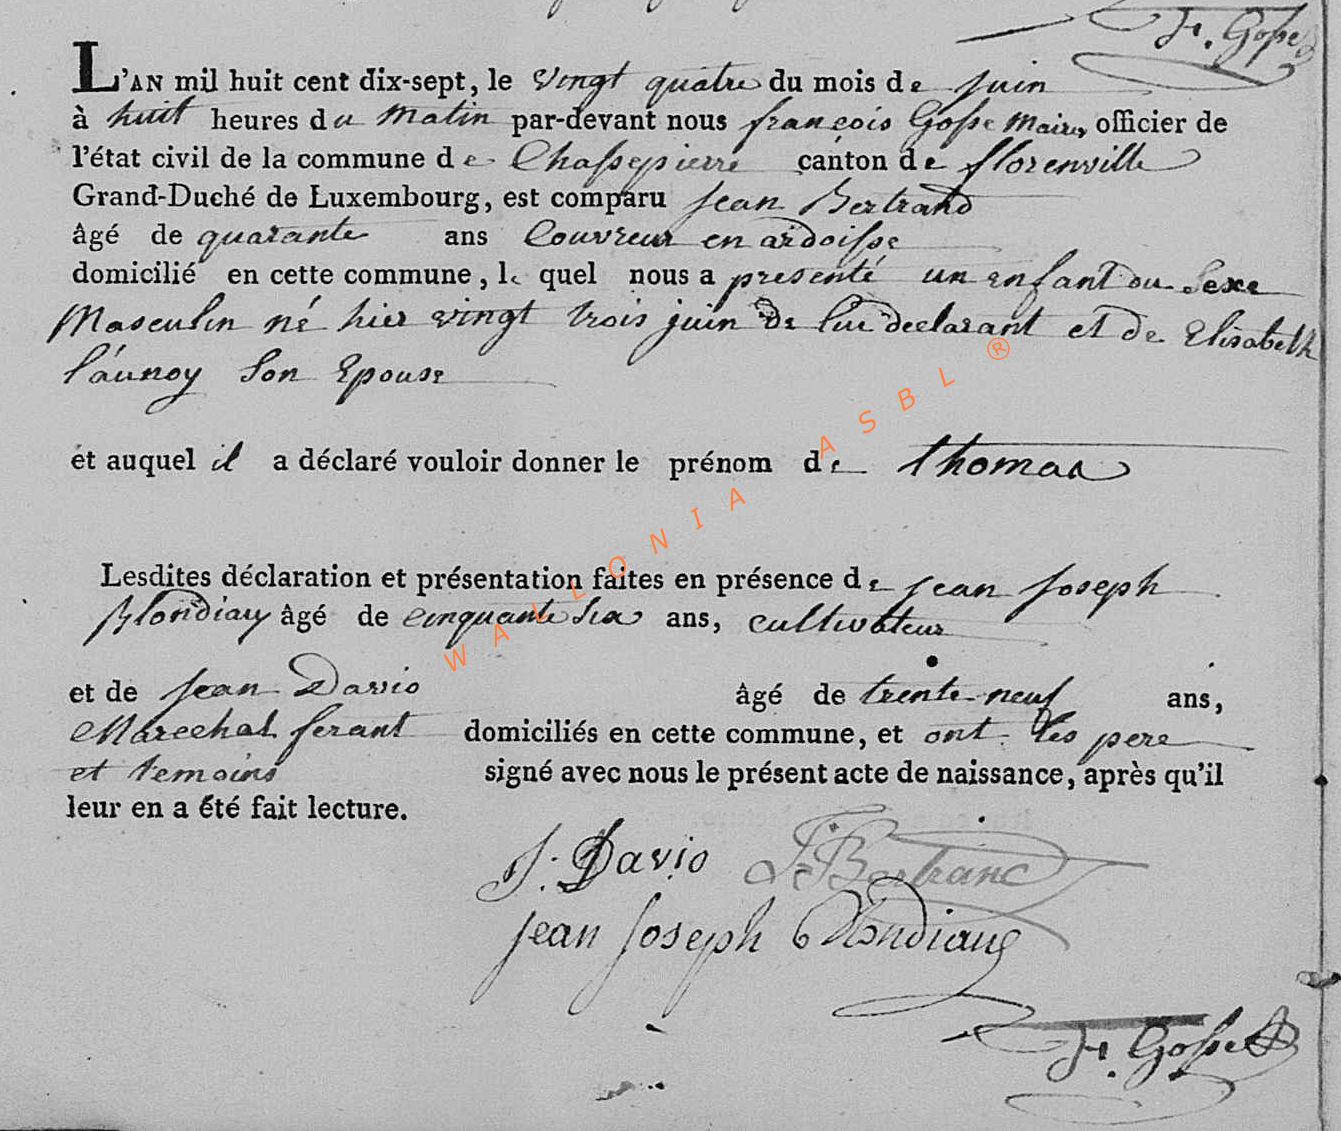 f. Gosse
L'AN mil huit cent dix-sept, le vingt quatre du mois de juin
à huit heures du matin par-devant nous françois Gosse Maire, officier de
l'état civil de la commune de Chassepierre canton de florenville
Grand-Duché de Luxembourg, est comparu Jean Bertrand
âgé de quarante ans Couvreur en ardoisse
domicilié en cette commune, le quel nous a presenté un enfant du Sexe
Masculin né hier vingt trois juin de lui declarant et de Elisabeth
Launoy Son Epouse
et auquel il a déclaré vouloir donner le prénom de thomas
Lesdites déclaration et présentation faites en présence de jean Joseph
blondiau âgé de cinquante six ans, cultivateur
et de Jean Davio âgé de trente-neuf ans,
Marechal ferant domiciliés en cette commune, et ont les pere
et temoins signé avec nous le présent acte de naissance, après qu'il
leur en a été fait lecture.
J. Davio J Bertrand
jean joseph blondiau
f. Gosse
WALLONIA ASBL ®